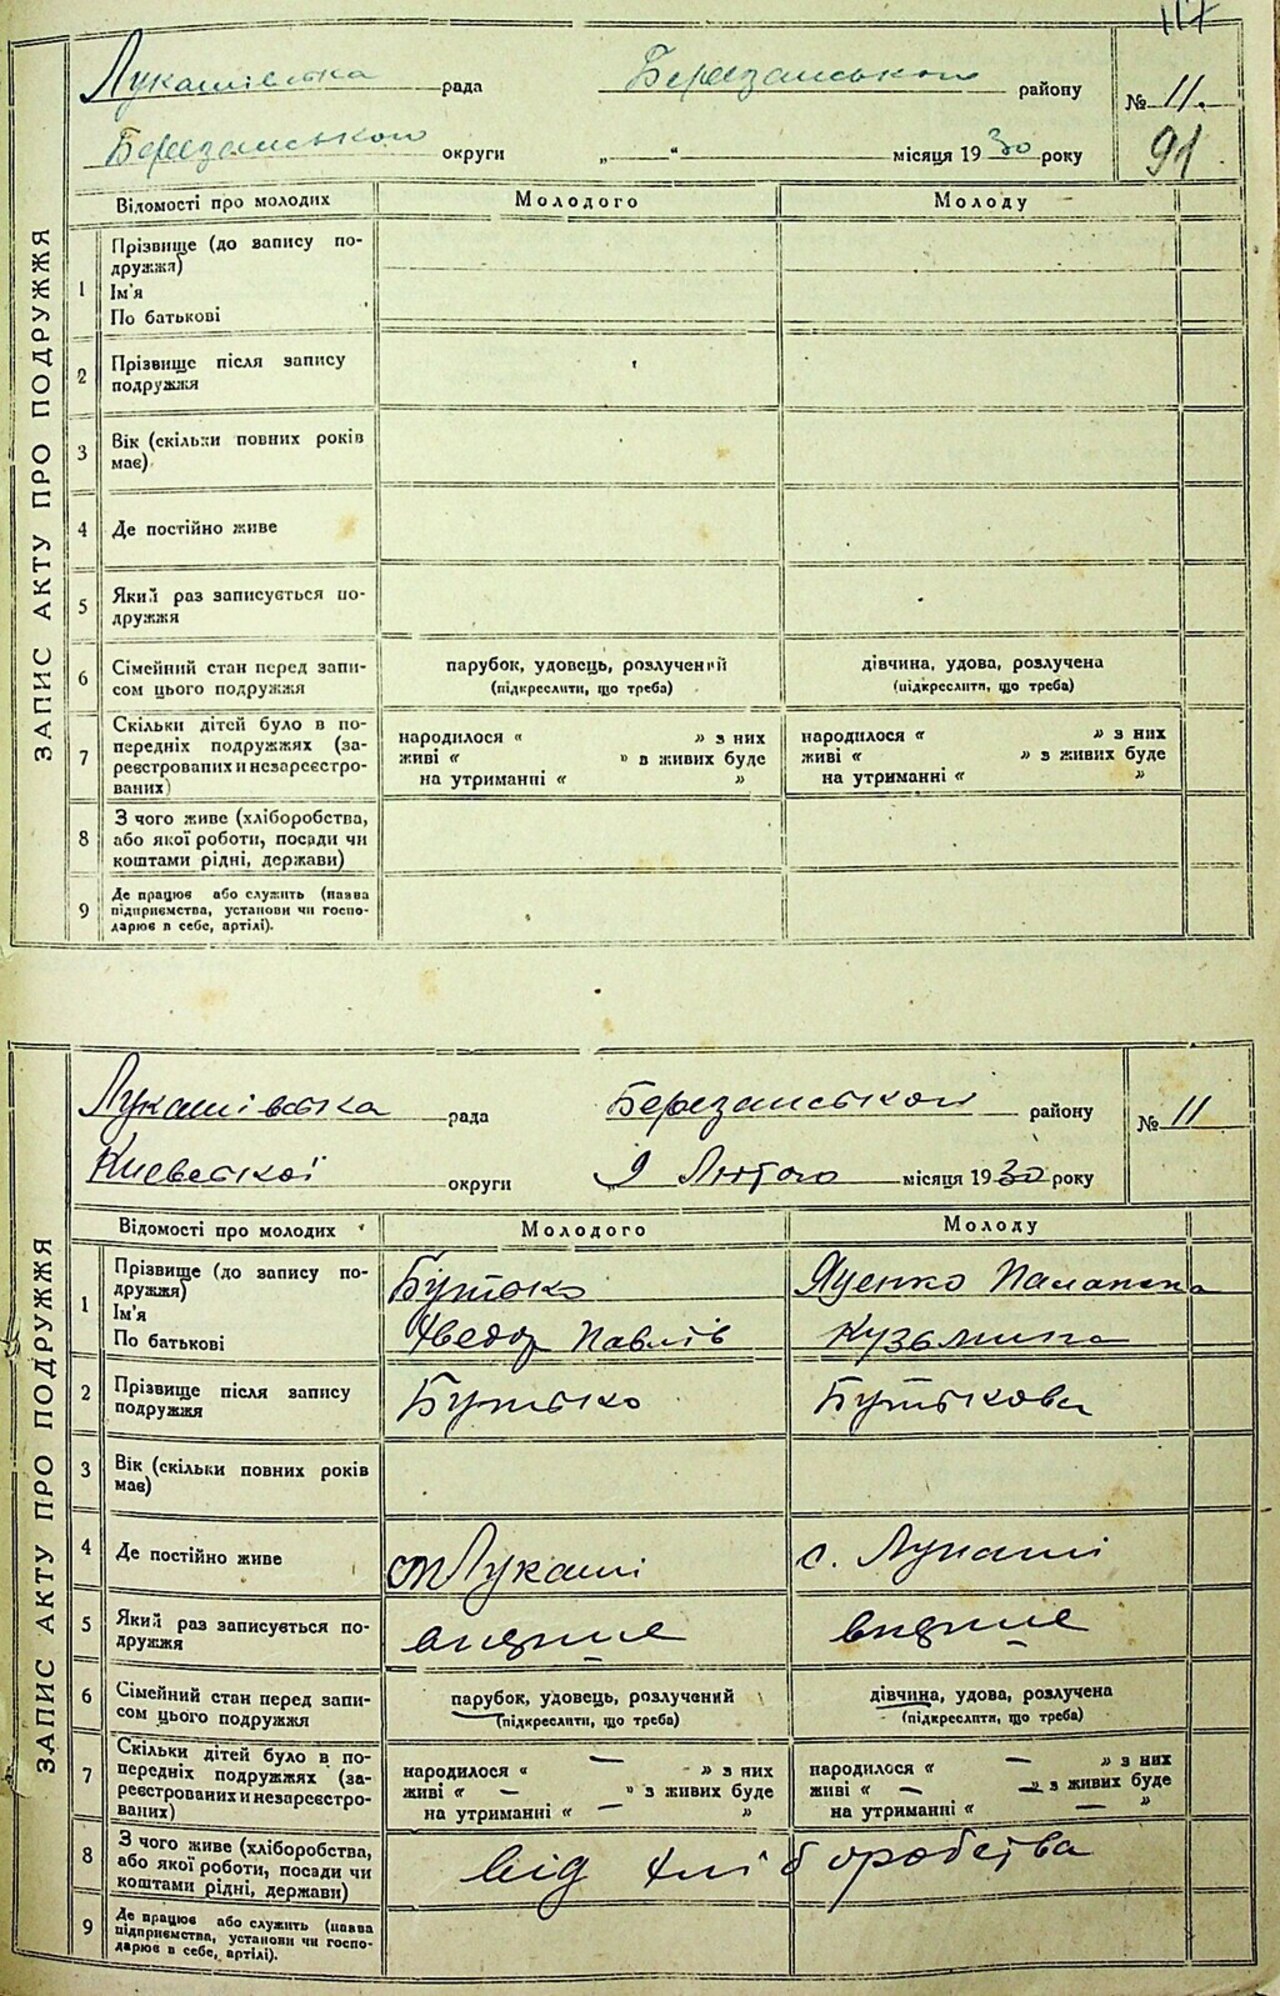 117
Лукашівська рада Березанського району № 11.
Березанської округи „ “ місяця 1930 року 91
ЗАПИС АКТУ ПРО ПОДРУЖЖЯ
Відомості про молодих Молодого Молоду
1 Прізвище (до запису по-
дружжя)
Ім'я
По батькові
2 Прізвище після запису
подружжя
3 Вік (скільки повних років
має)
4 Де постійно живе
5 Який раз записується по-
дружжя
6 Сімейний стан перед запи-
сом цього подружжя
парубок, удовець, розлучений
(підкреслити, що треба)
дівчина, удова, розлучена
(підкреслити, що треба)
7 Скільки дітей було в по-
передніх подружжях (за-
реєстрованих и незареєстро-
ваних)
народилося “ ” з них
живі “ ” в живих буде
на утриманні “ ”
народилося “ ” з них
живі “ ” з живих буде
на утриманні “ ”
8 З чого живе (хліборобства,
або якої роботи, посади чи
коштами рідні, держави)
9 Де працює або служить (назва
підприємства, установи чи госпо-
дарює в себе, артілі).
Лукашівська рада Березанського району № 11
Киевської округи 9 Лютого місяця 1930 року
ЗАПИС АКТУ ПРО ПОДРУЖЖЯ
Відомості про молодих Молодого Молоду
1 Прізвище (до запису по-
дружжя)
Ім'я
По батькові
Бутько
Хведор Павлів
Яценко Палажка
Кузьмина
2 Прізвище після запису
подружжя
Бутько Бутькова
3 Вік (скільки повних років
має)
4 Де постійно живе Лукаші с. Лукаші
5 Який раз записується по-
дружжя
вперше вперше
6 Сімейний стан перед запи-
сом цього подружжя
парубок, удовець, розлучений
(підкреслити, що треба)
дівчина, удова, розлучена
(підкреслити, що треба)
7 Скільки дітей було в по-
передніх подружжях (за-
реєстрованих и незареєстро-
ваних)
народилося “ — ” з них
живі “ — ” з живих буде
на утриманні “ — ”
народилося “ — ” з них
живі “ — ” з живих буде
на утриманні “ — ”
8 З чого живе (хліборобства,
або якої роботи, посади чи
коштами рідні, держави)
від хліборобства
9 Де працює або служить (назва
підприємства, установи чи госпо-
дарює в себе, артілі).